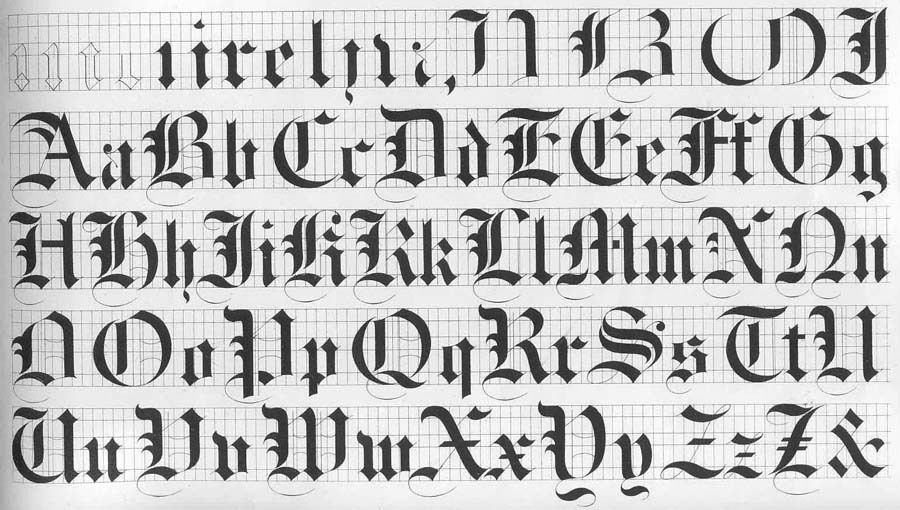 irel
AaBbCcDdEEeFfGg
HHhIiKKkLlMmNNn
NOoPpQqRrSsTtU
UuVvWwXxYyZzZ&